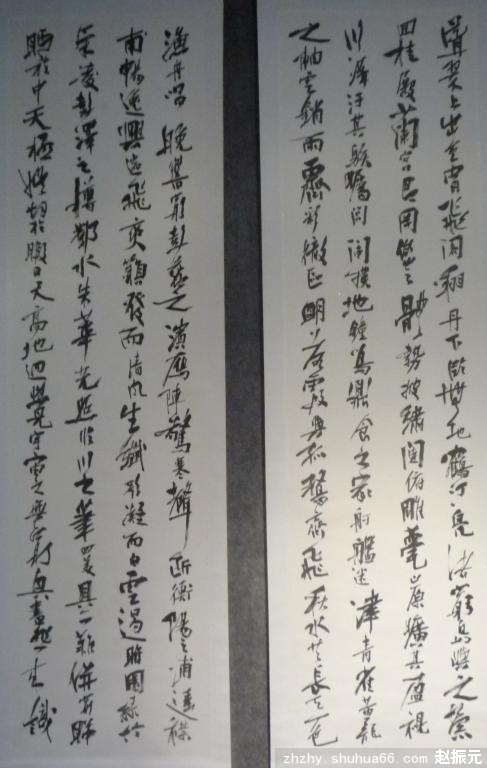 聳翠上出重霄飛閣翔丹下臨無地鶴汀鳧渚窮島嶼之縈
回桂殿蘭宮即岡巒之體勢披繡闥俯雕甍山原曠其盈視
川澤紆其駭矚閭閻撲地鐘鳴鼎食之家舸艦迷津青雀黃龍
之舳雲銷雨霽彩徹區明落霞與孤鶩齊飛秋水共長天一色
漁舟唱晚響窮彭蠡之濱雁陣驚寒聲斷衡陽之浦遙襟
甫暢逸興遄飛爽籟發而清風生纖歌凝而白雲遏睢園綠竹
氣凌彭澤之樽鄴水朱華光照臨川之筆四美具二難併窮睇
眄於中天極娛遊於暇日天高地迥覺宇宙之無窮興盡悲來識
zhzhy.shuhua66.com 赵振元